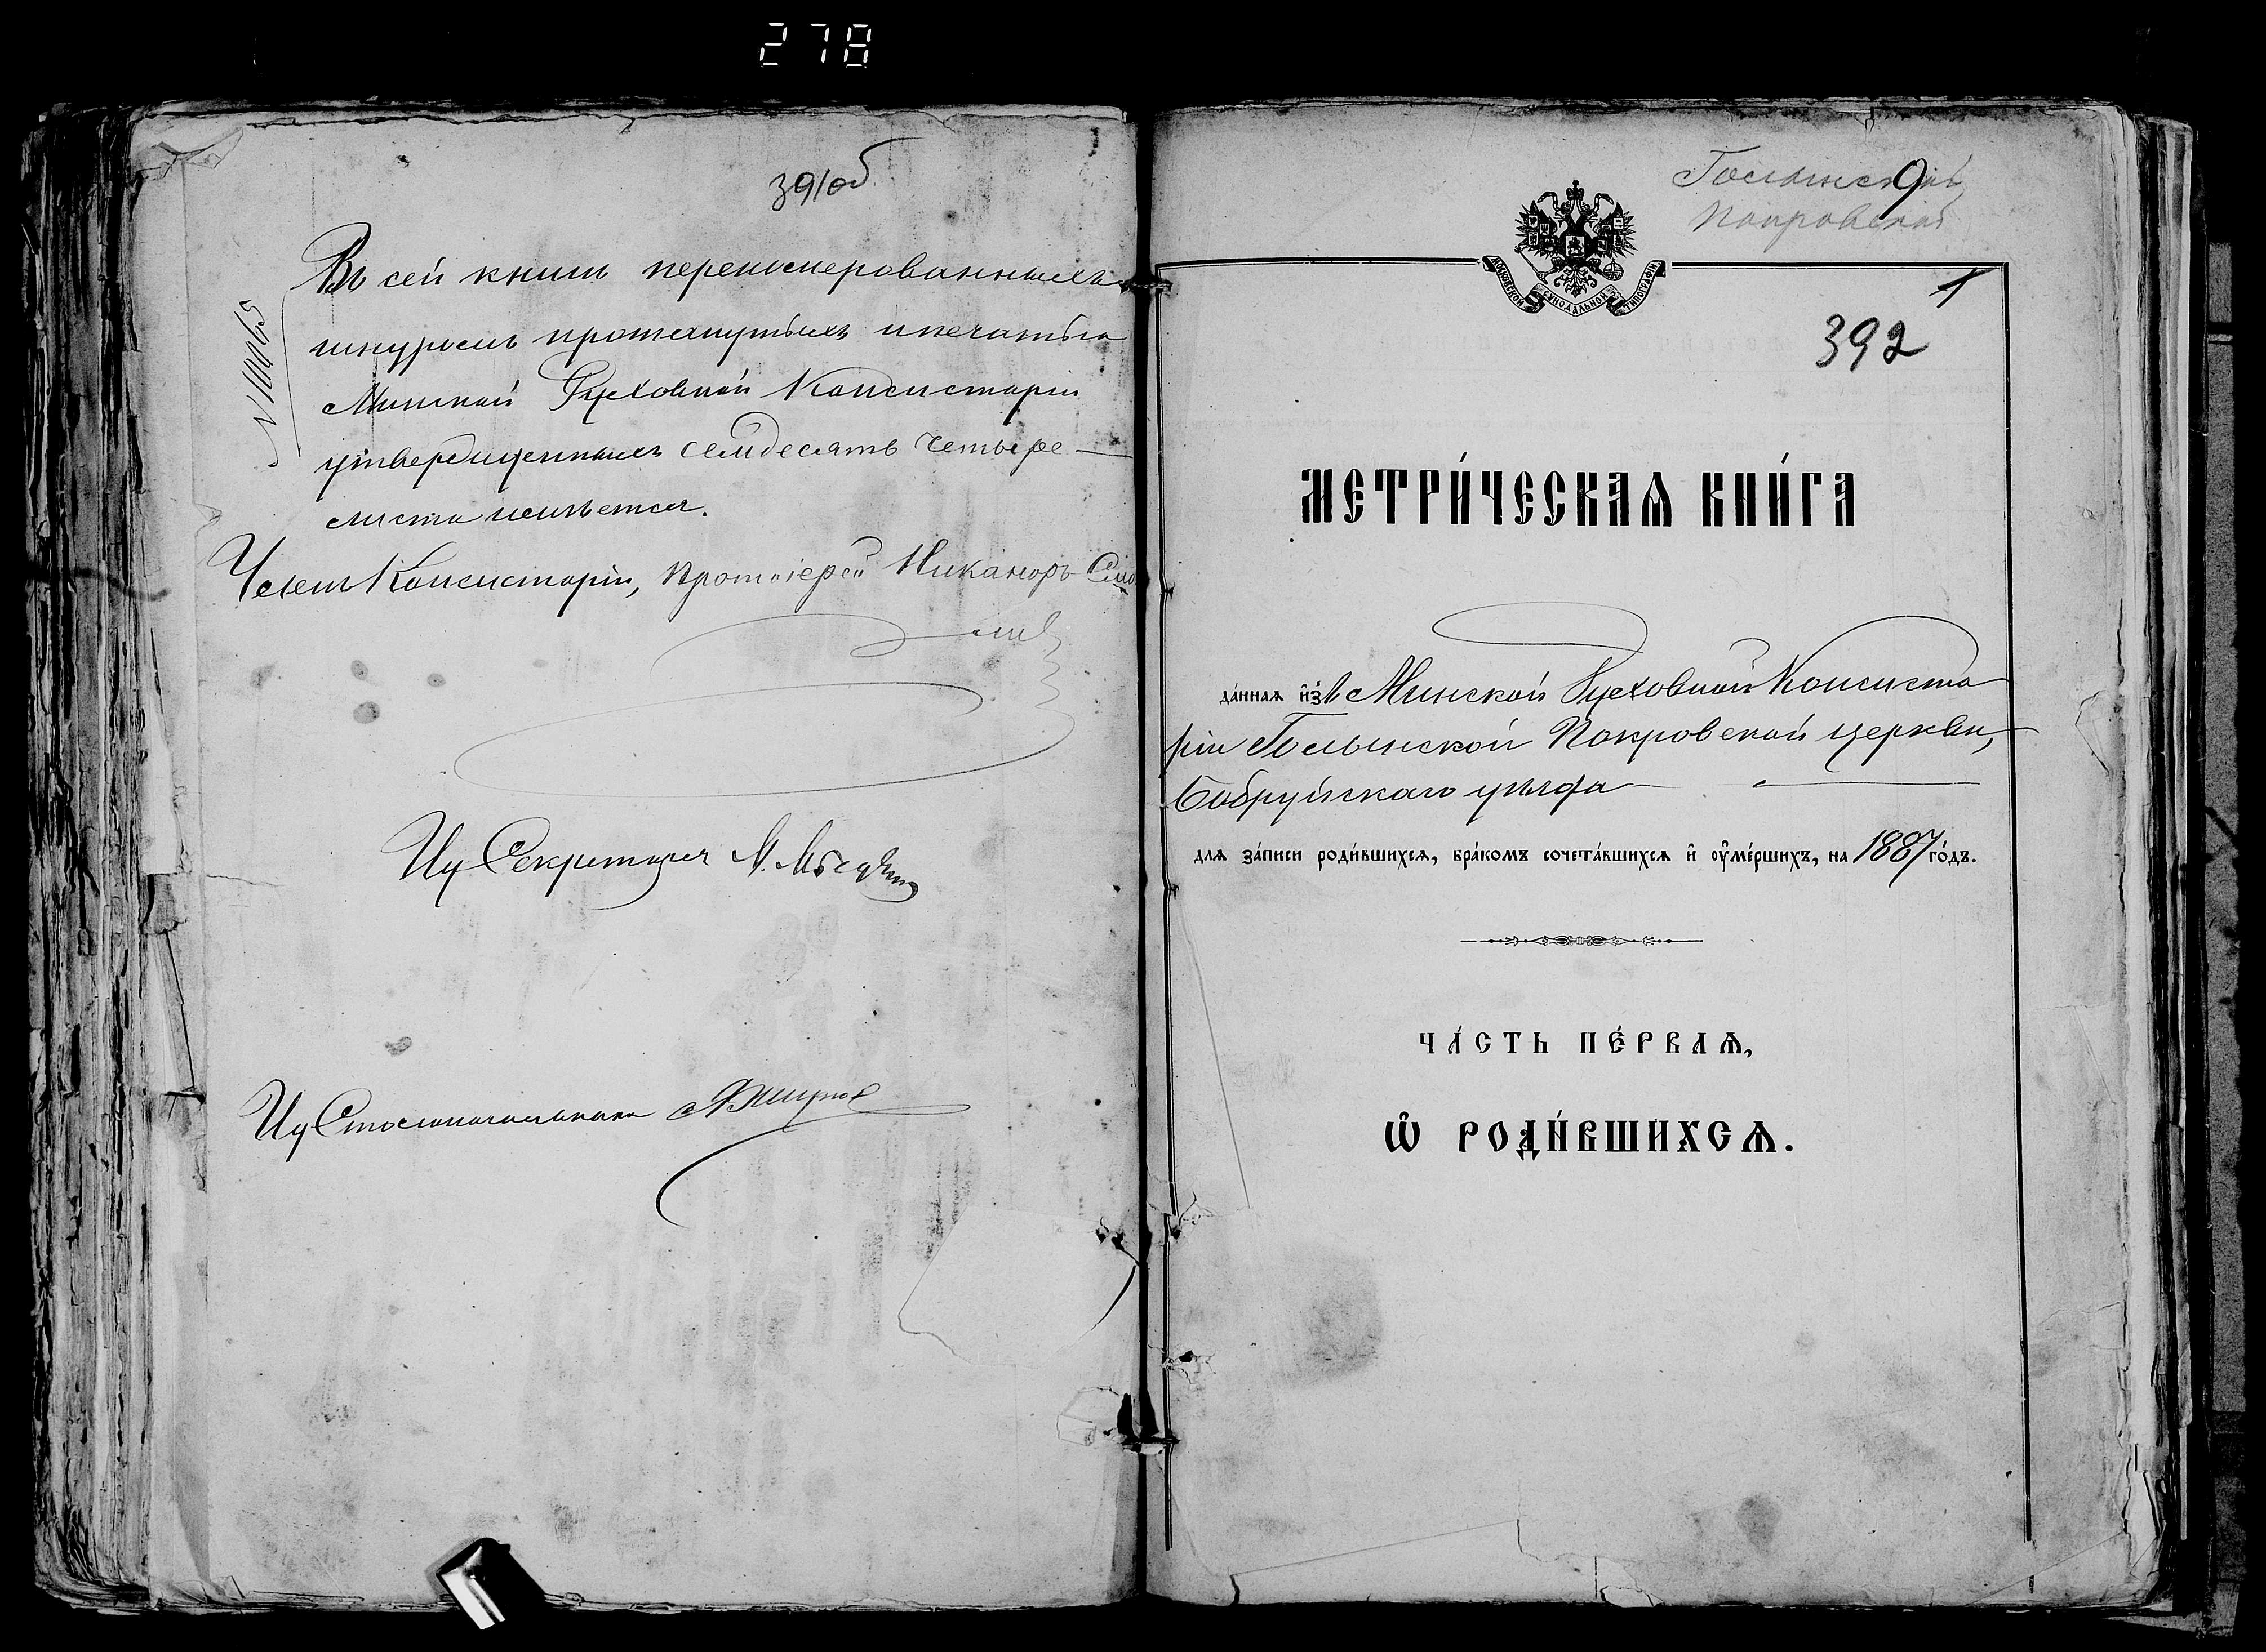 278
391об
№10015
Въ сей книгѣ перенумерованныхъ
шнуромъ протянутыхъ и печатью
Минской Духовной Консисторіи
утвержденныхъ семдесятъ четыре
листа имѣется.
Членъ Консисторіи, Протоіерей Никаноръ
Иц Секретаря М.
Иц Столоначальника
Покровской
9
1
392
МОСКОВСКОЙ СѴНОДАЛЬНОЙ ТИПОГРАФІИ
МЕТРИ́ЧЕСКАѦ КНИ́ГА
да́ннаѧ и҆зъ Минской Духовной Консисто
ріи Голынской Покровской церкви,
Бобруйскаго уѣзда
для за́писи роди́вшихсѧ, бра́комъ сочета́вшихсѧ и҆ ᲂу҆ме́ршихъ, на 1887 го́дъ.
ЧА́СТЬ ПЕ́РВАѦ,
Ѡ҆ РОДИ́ВШИХСѦ.